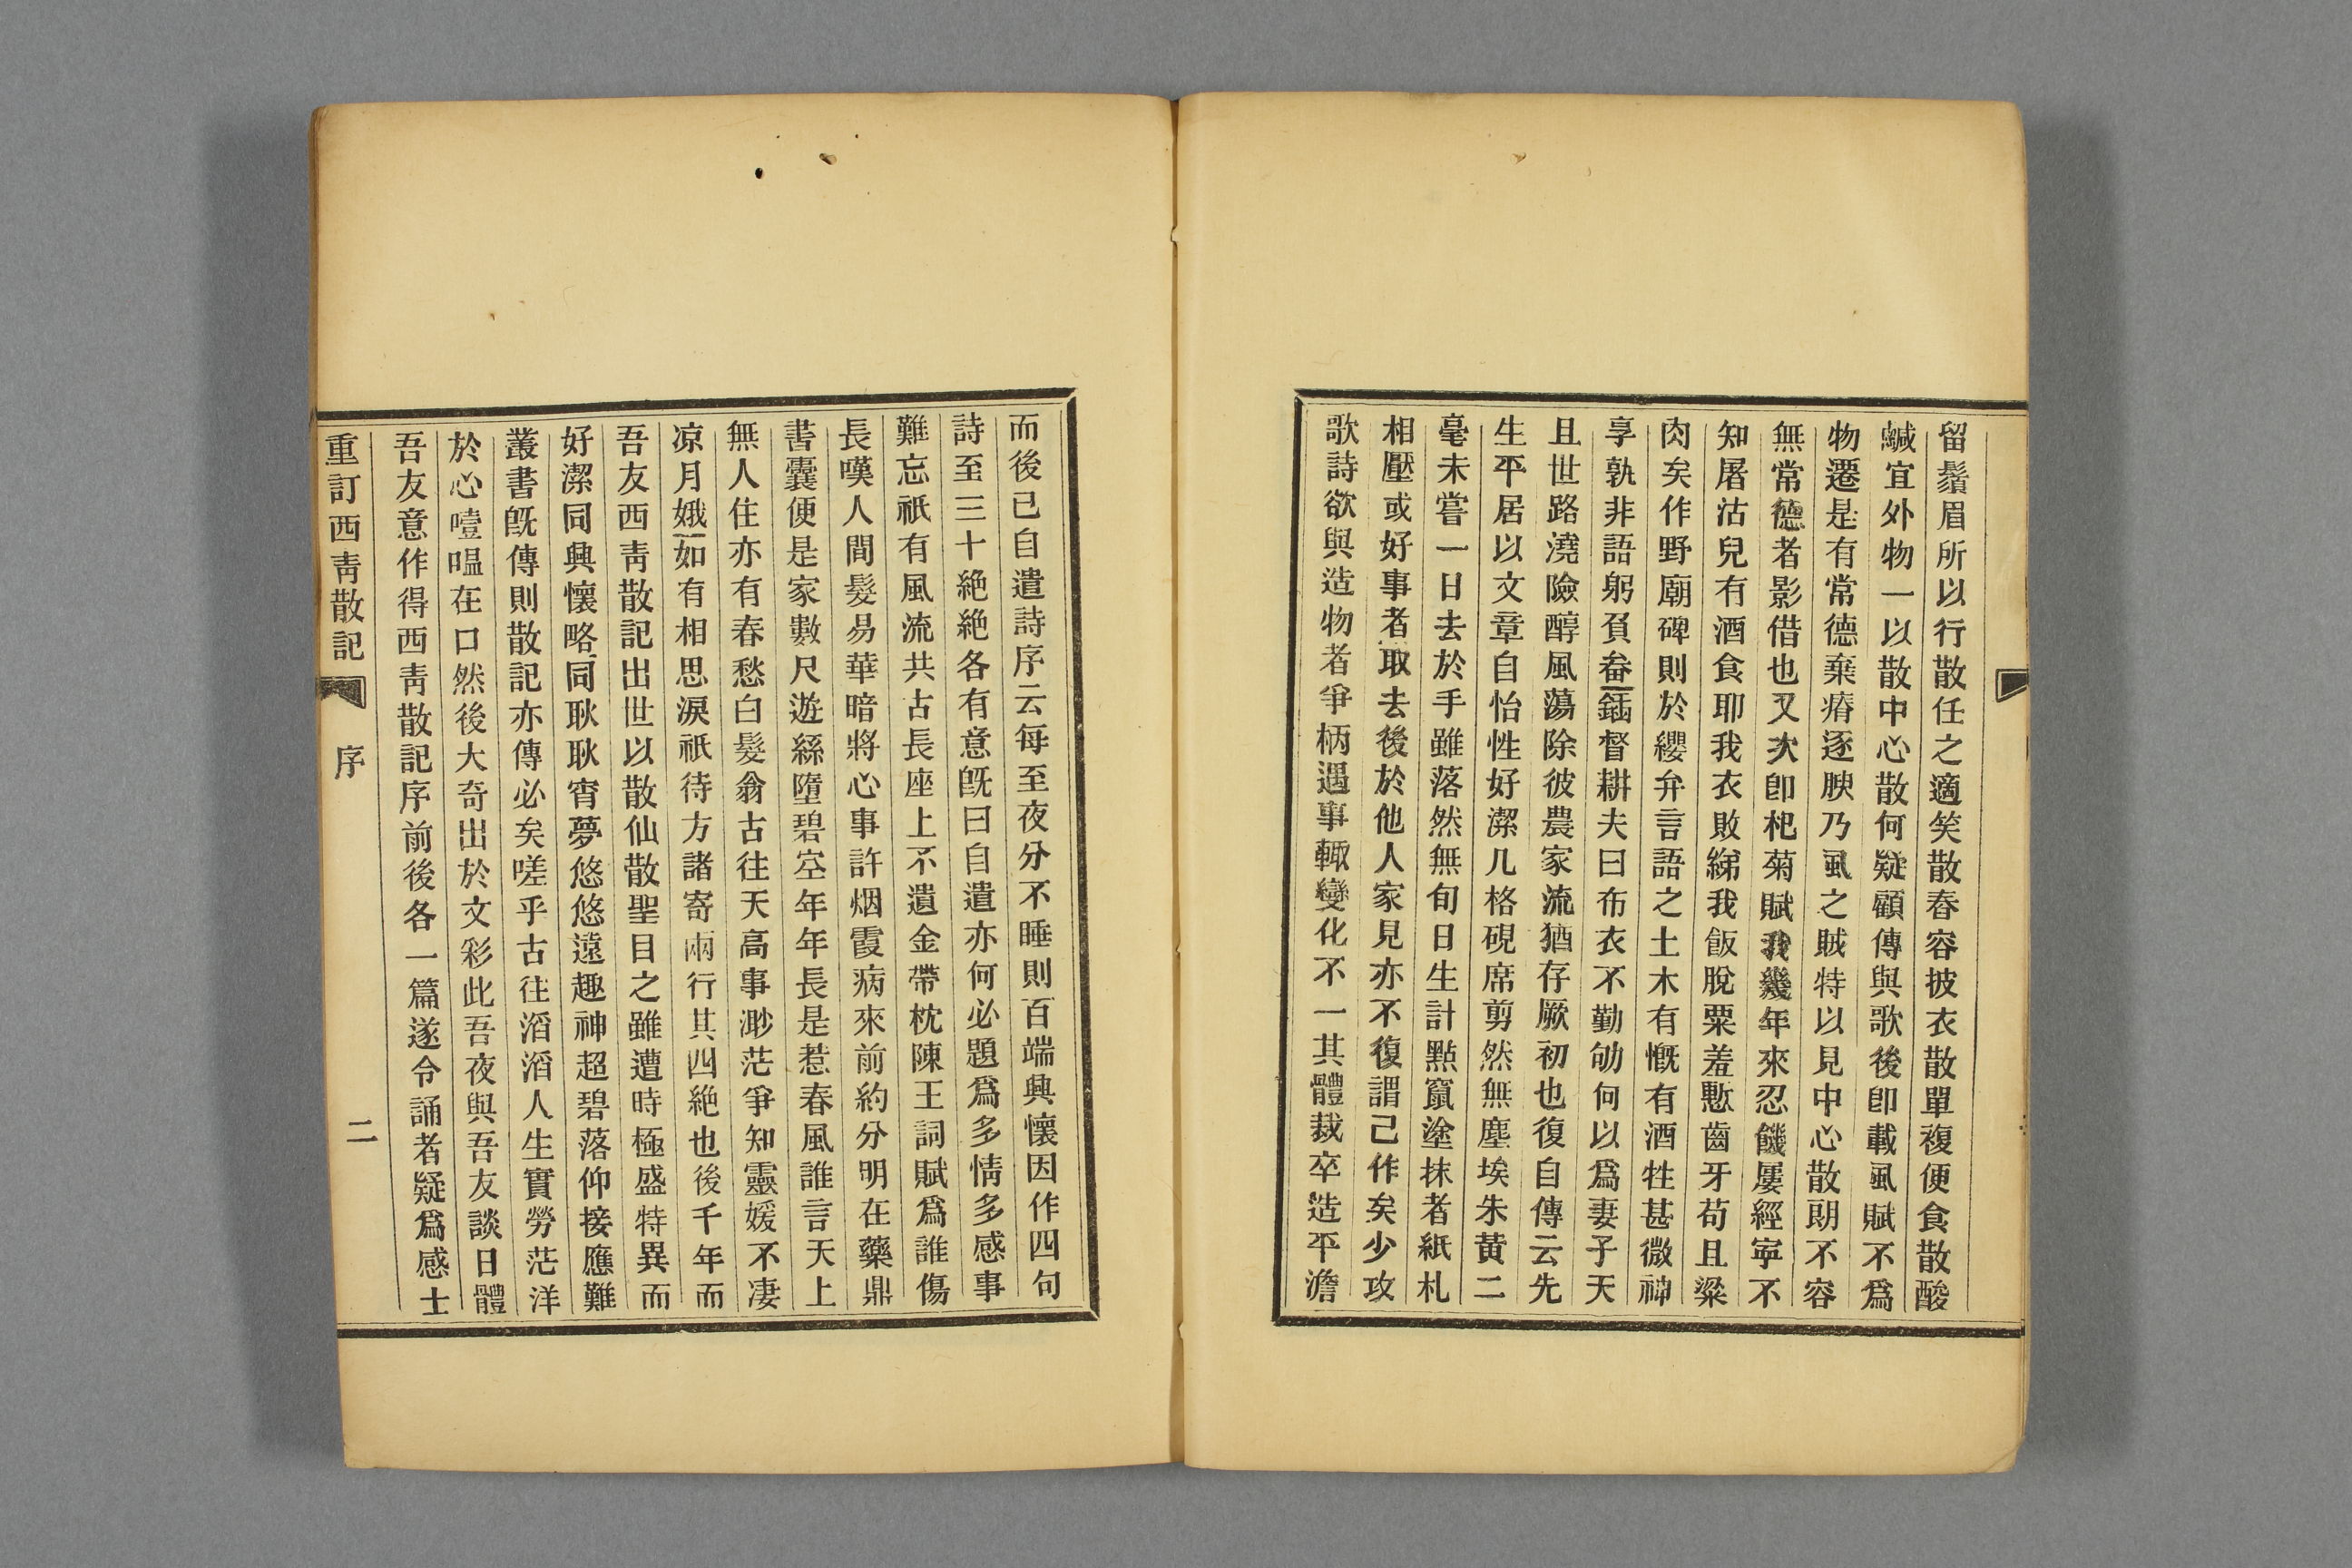 留鬚眉所以行散任之適笑散春容披衣散單複便食散酸
鹹宜外物一以散中心散何疑顧傳與歌後卽載風賦不爲
物遷是有常德棄瘠逐腴乃風之賊特以見中心散朗不容
無常德者影借也又次卽杞菊賦我幾年來忍饑屢經寧不
知屠沽兒有酒食耶我衣敗綈我飯脫粟羞慙齒牙苟且粱
肉矣作野廟碑則於纓弁言語之土木有慨有酒牲甚微神
享孰非語躬負畚鍤督耕夫曰布衣不勤劬何以爲妻子天
且世路澆險醇風蕩除彼農家流猶存厥初也復自傳云先
生平居以文章自怡性好潔几格硯席剪然無塵埃朱黃二
毫未嘗一日去於手雖落然無旬日生計點竄塗抹者紙札
相壓或好事者取去後於他人家見亦不復謂己作矣少攻
歌詩欲與造物者爭柄遇事輙變化不一其體裁卒造平澹
而後已自遣詩序云每至夜分不睡則百端興懷因作四句
詩至三十絶絶各有意旣曰自遣亦何必題爲多情多感事
難忘祇有風流共古長座上不遺金帶枕陳王詞賦爲誰傷
長嘆人間髮易華暗將心事許烟霞病來前約分明在藥鼎
書囊便是家數尺遊絲墮碧空年年長是惹春風誰言天上
無人住亦有春愁白髮翁古往天高事渺茫爭知靈媛不凄
凉月娥如有相思淚祇待方諸寄兩行其四絶也後千年而
吾友西靑散記出世以散仙散聖目之雖遭時極盛特異而
好潔同興懷略同耿耿宵夢悠悠遠趣神超碧落仰接應難
叢書旣傳則散記亦傳必矣嗟乎古往滔滔人生實勞茫洋
於心噎嗢在口然後大奇出於文彩此吾夜與吾友談日體
吾友意作得西靑散記序前後各一篇遂令誦者疑爲感士
重訂西靑散記 序 二